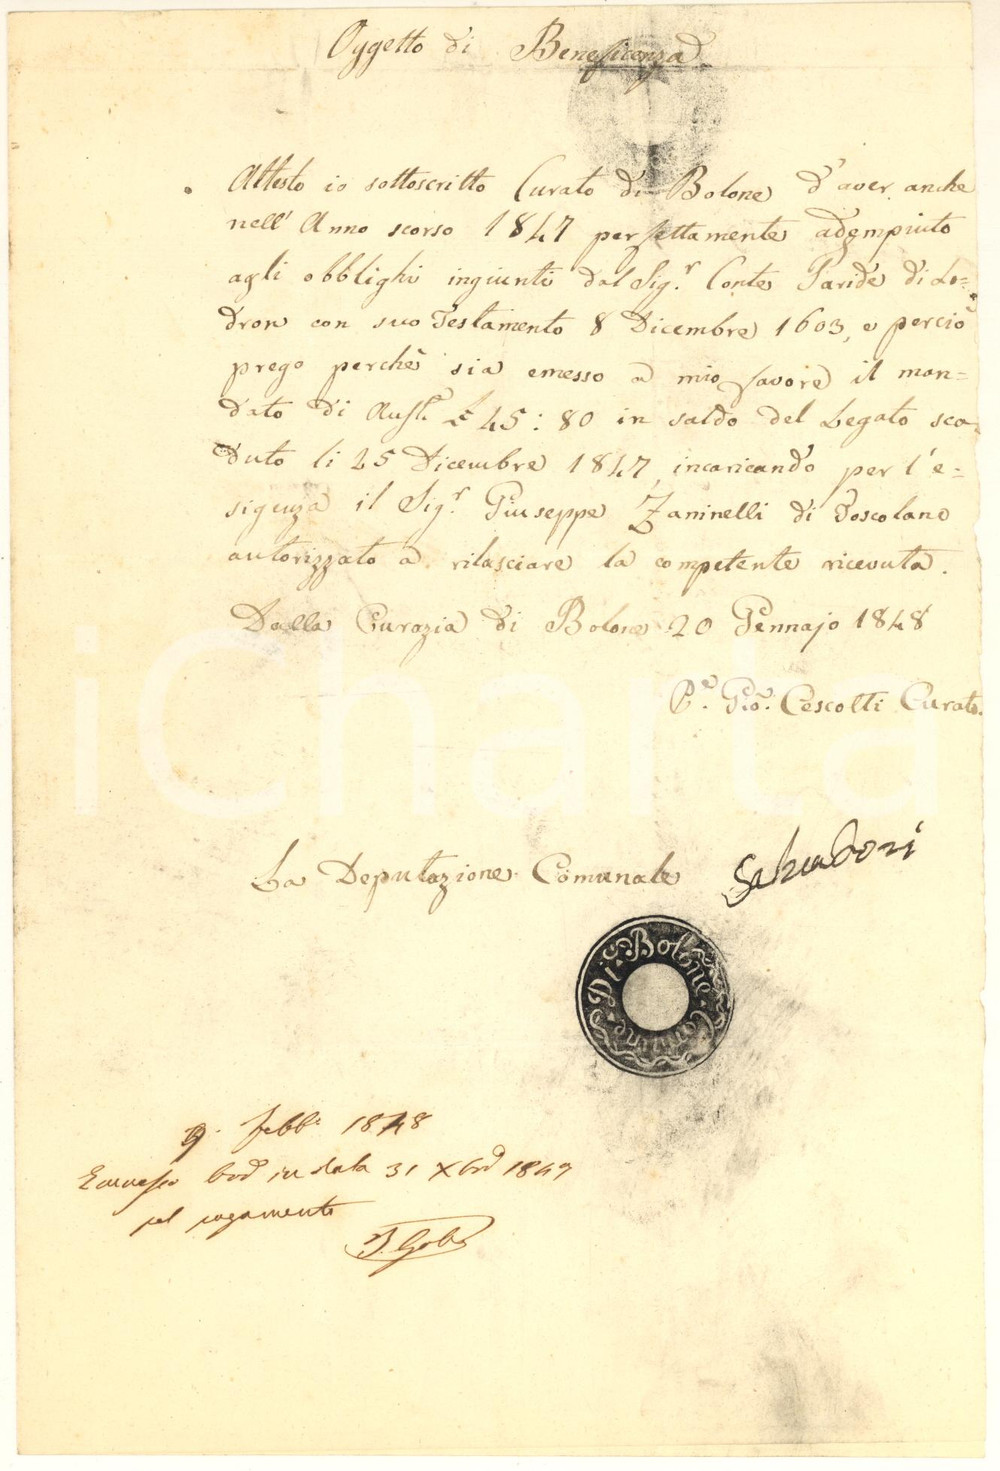 Oggetto di Beneficenza
Attesto io sottoscritto Curato di Bolone d'aver anche
nell' Anno scorso 1847 perfettamente adempiuto
agli obblighi ingiunti dal Sig.r Conte Paride di Lo=
dron con suo Testamento 8 Dicembre 1603, e perciò
prego perchè sia emesso a mio favore il man=
dato di Aust. £ 45:80 in saldo del Legato sca=
duto li 25 Dicembre 1847, incaricando per l'e=
sigenza il Sig.r Giuseppe Zaninelli di Toscolano
autorizzato a rilasciare la competente ricevuta.
Dalla Curazia di Bolone 20 Gennajo 1848
P.e Gio. Cescotti Curato.
iCharta
La Deputazione Comunale Salvadori
Comune Di Bolone
9. Febb. 1848
Emesso in data 31 Xbre 1847
pel pagamento